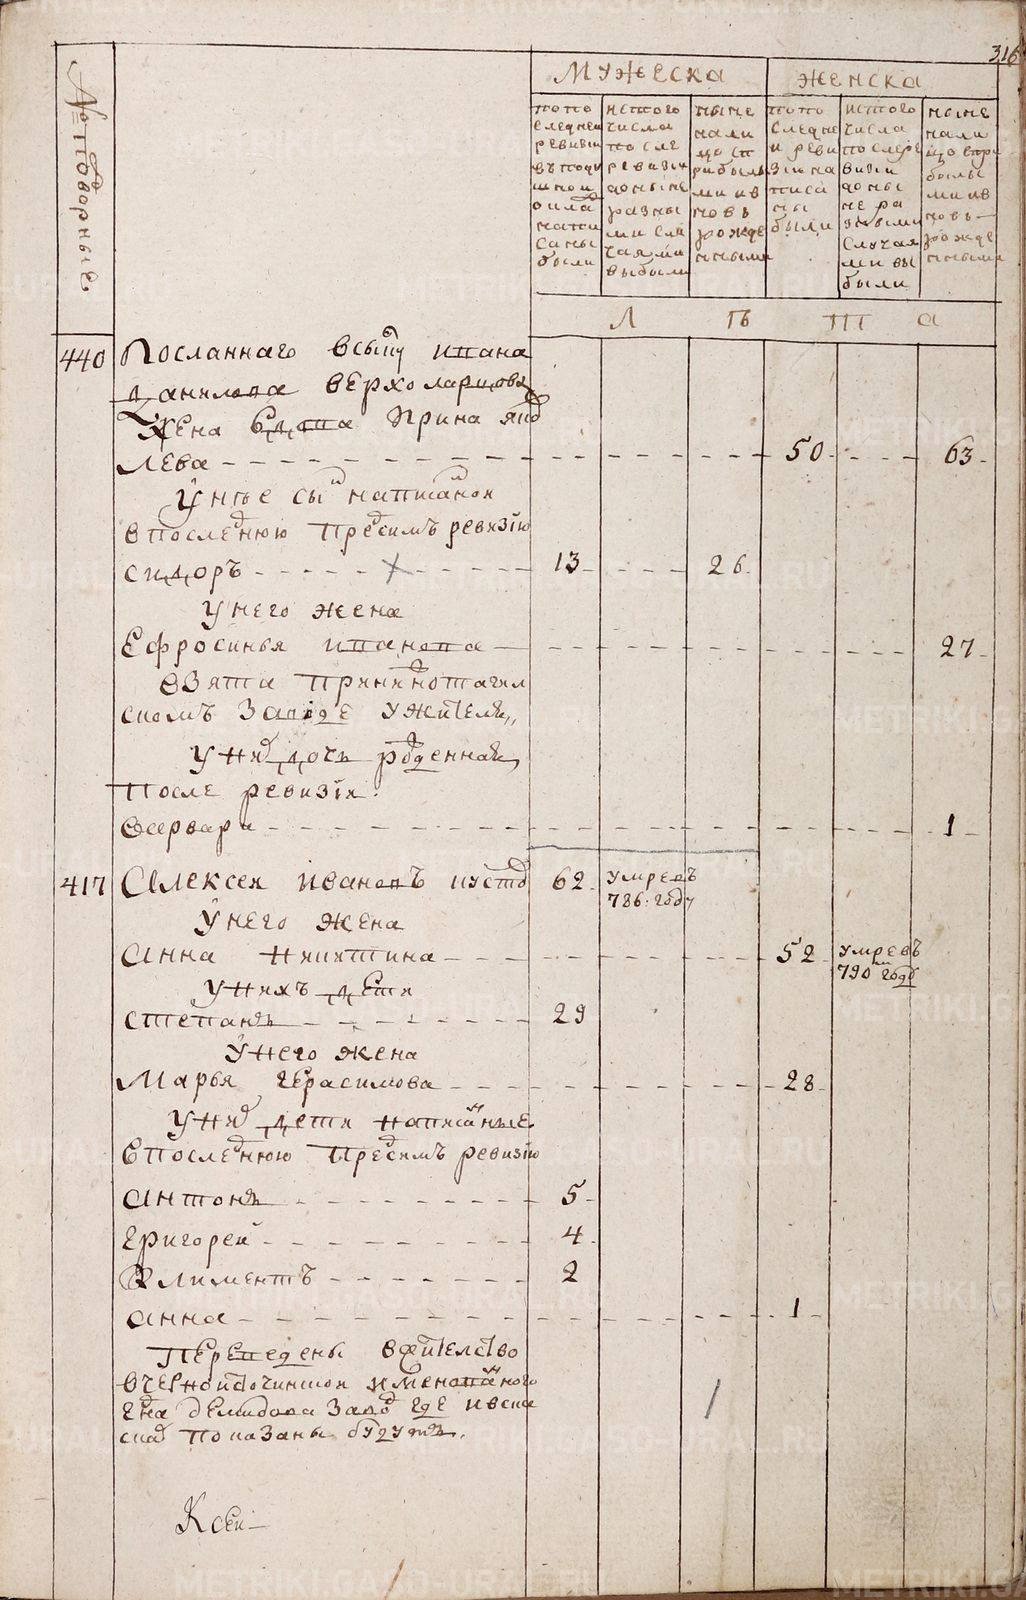 316
№ Дворные
МУЖЕСКА
ЖЕНСКА
попо следней ревизии въ подушной окладъ написаны были
исъ того числа после ревизiи до ныне разными случаями выбыли
ныне на лицо съ прибылыми и вновь рожденными
попо следней ревизiи написаны были
исъ того числа после ревизiи до ныне разными случаями выбыли
ныне на лицо с прибылыми и вновь рожденными
Л Ѣ Т А
440 Посланнаго в Ивана
Данилова верхоларцова
жена вдова Ирина яков
лева 50 63
У нее сынъ написанои
в последнюю предсимъ ревизiю
сидоръ 13 26
У него жена
Ефросинья иванова 27
взята
скомъ Заводе ужителя
У них дочь рожденная
после ревизiи
варвара 1
417 Алексей ивановъ пустов 62 умре въ 786 году
У него жена
анна никитина 52 умре въ 790м годе
У них дети
степанъ 29
У него жена
Марья герасимова 28
У них дети написанные
в последнюю предсимъ ревизiю
антонъ 5
григорей 4
климентъ 2
анна 1
Переведены вжительство
в черноисточинской именованного
гдна демидова завод где ивска
ска показаны будутъ